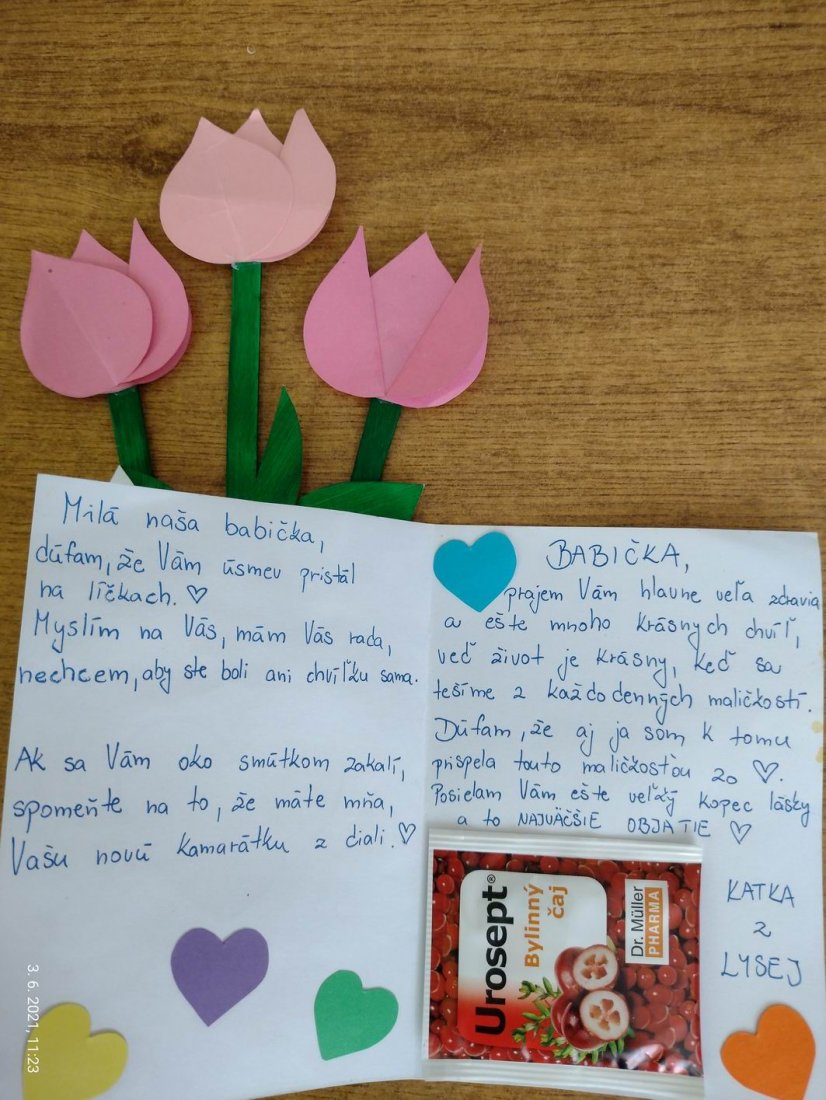 Milá naša babička,
dúfam, že Vám úsmev pristál
na líčkach. ♡
Myslím na Vás, mám Vás rada,
nechcem, aby ste boli ani chvíľku sama.
Ak sa Vám oko smútkom zakalí,
spomeňte na to, že máte mňa,
Vašu novú kamarátku z diali. ♡
BABIČKA,
prajem Vám hlavne veľa zdravia
a ešte mnoho krásnych chvíľ,
veď život je krásny, keď sa
tešíme z každodenných maličkostí.
Dúfam, že aj ja som k tomu
prispela touto maličkosťou zo ♡.
Posielam Vám ešte veľký kopec lásky
a to NAJVÄČŠIE OBJATIE ♡
KATKA
Z
LYSEJ
Urosept®
Bylinný
čaj
Dr. Müller
PHARMA
3. 6. 2021, 11:23